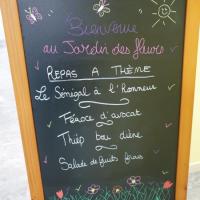 Bienvenue
au Jardin des fleurs
REPAS A THÈME
Le Sénégal à l'honneur
Féroce d'avocat
Thiép bou diène
Salade de fruits frais